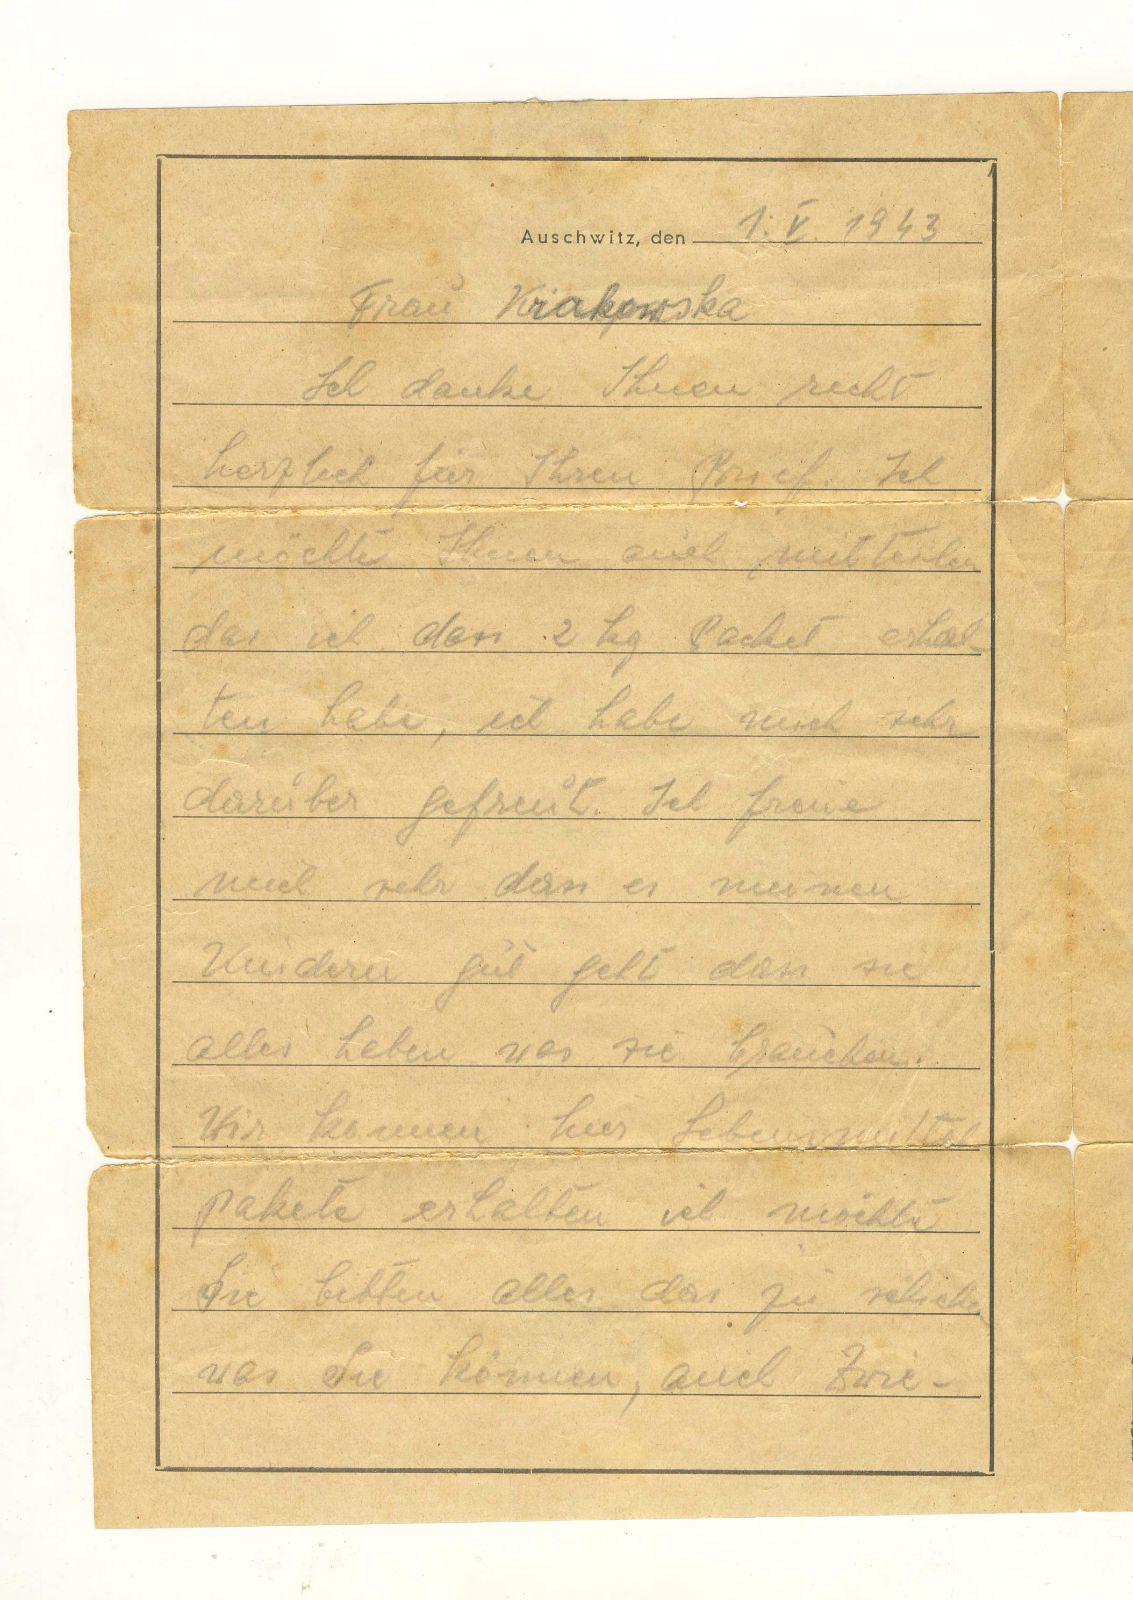 Auschwitz, den 1. V. 1943
Frau Krakowska
Ich danke Ihnen recht
herzlich für Ihren Brief. Ich
möchte Ihnen auch mitteilen
das ich dass 2 kg Packet erhal-
ten habe, ich habe mich sehr
darüber gefreut. Ich freue
mich sehr dass es meinen
Kindern gut geht dass sie
alles haben was sie brauchen.
Wir konnen hier Lebensmittel
pakete erhalten ich möchte
Sie bitten alles das zu schicken
was Sie können, auch Zwie-